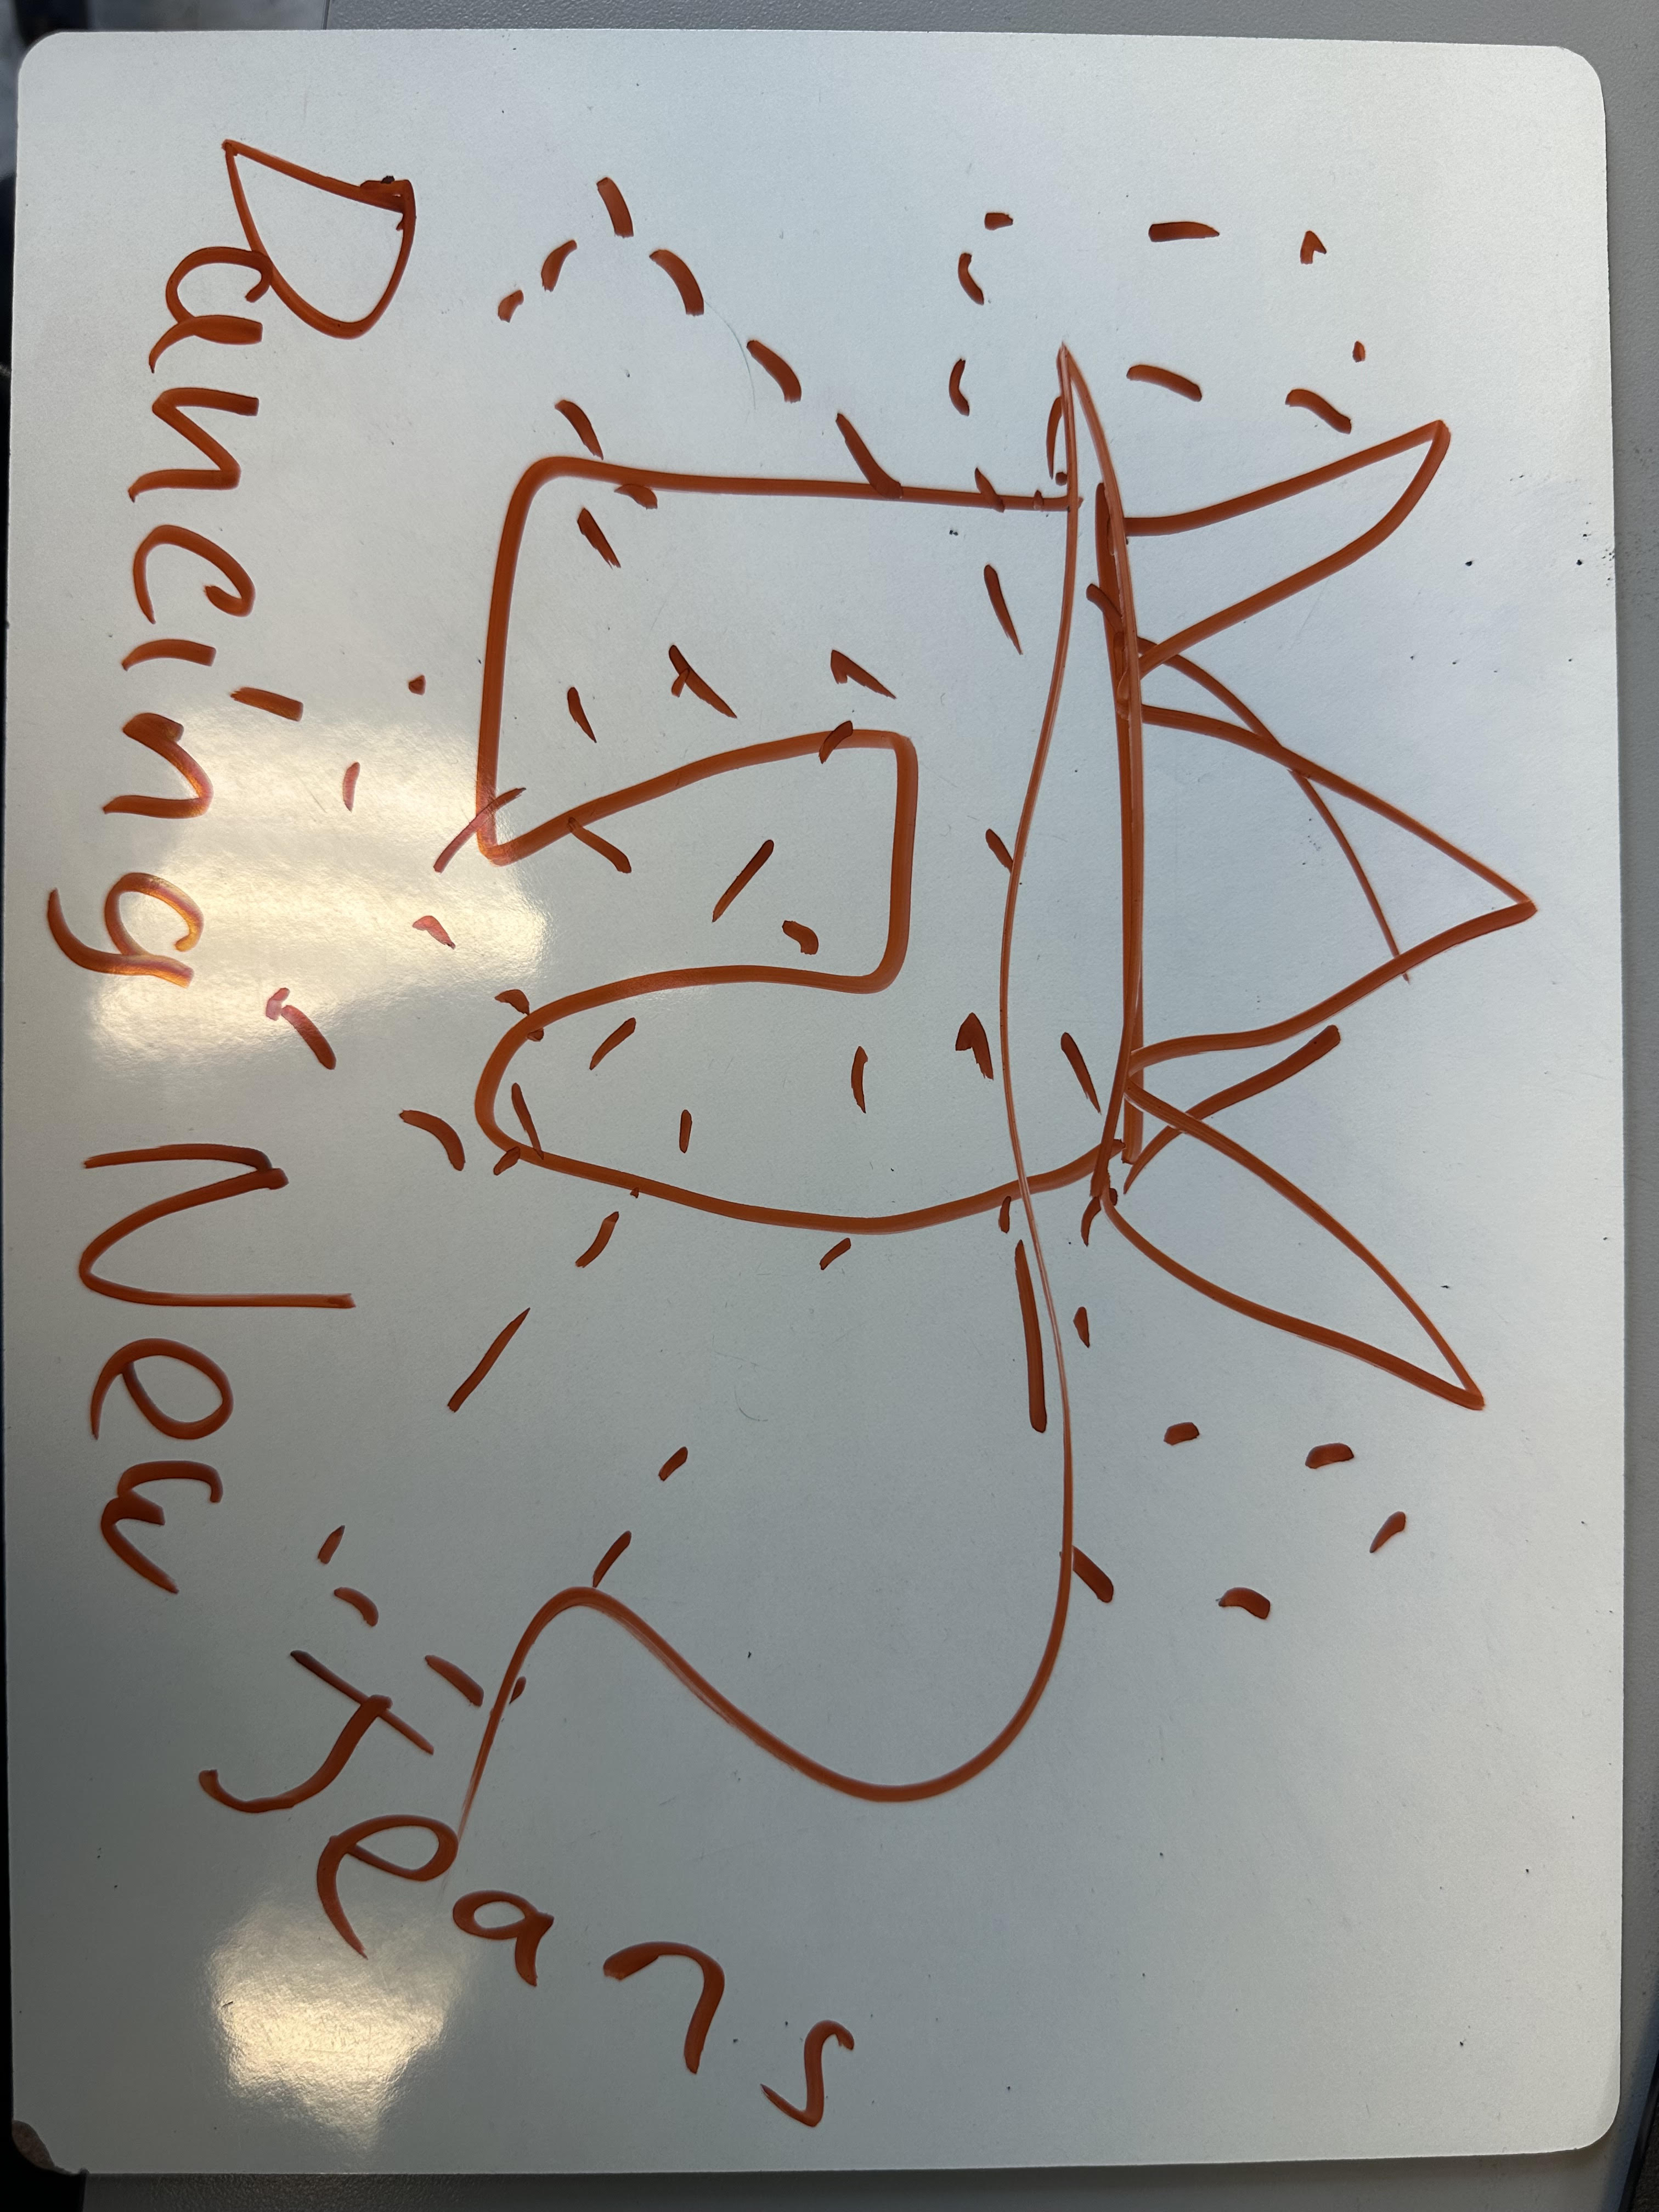 Dancing New Years